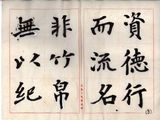 資德行
而流名
非竹帛
無以紀